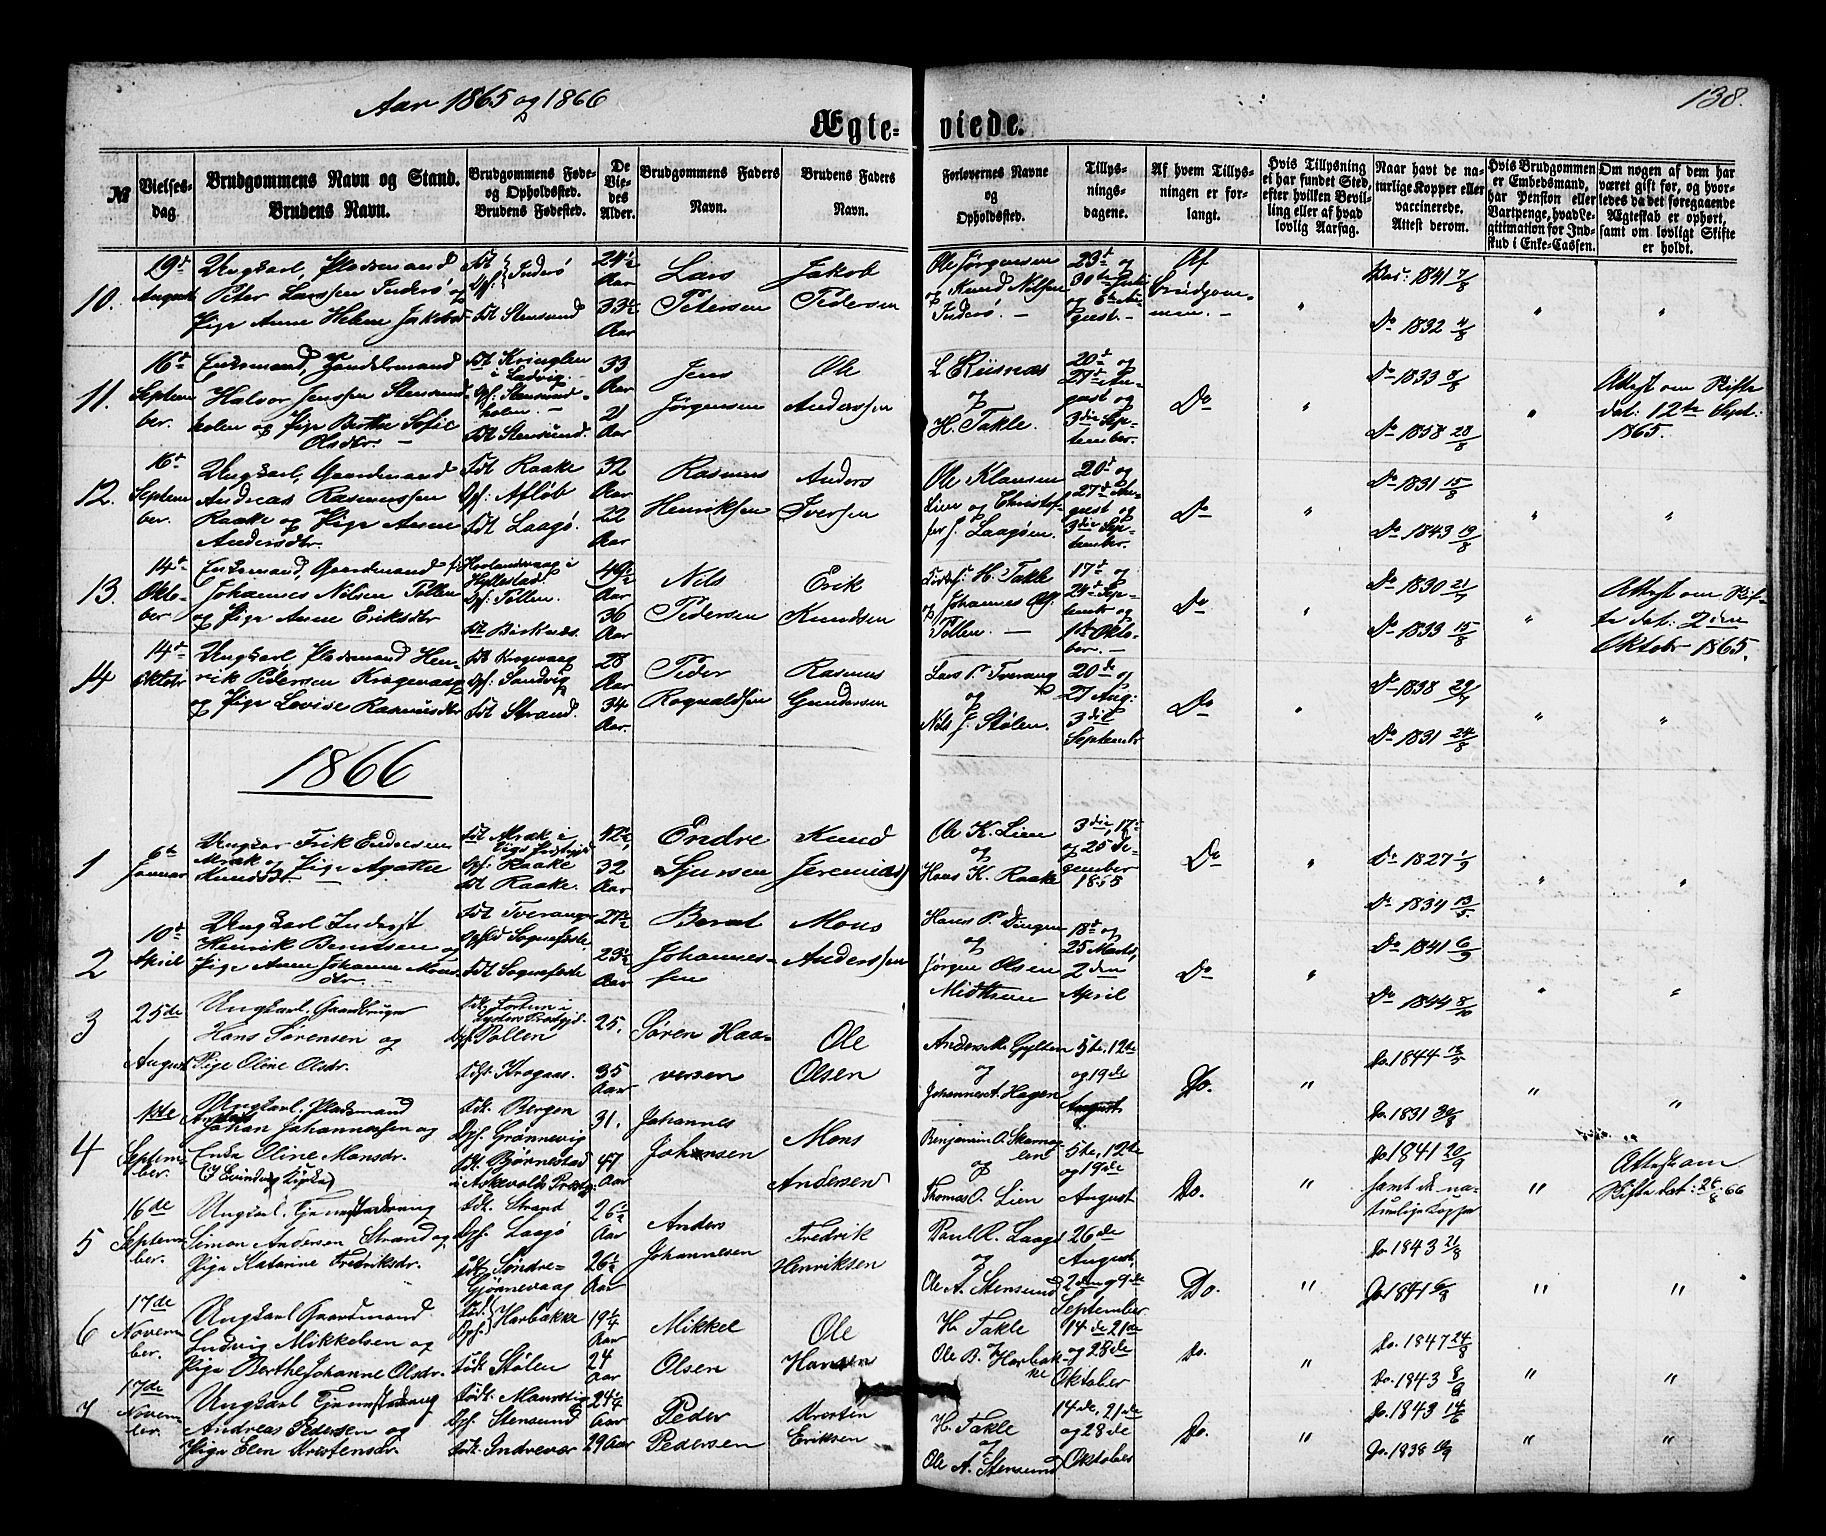 Aar 1865 og 1866
138.
Ægte= viede.
№
Vielses=
dag.
Brudgommens Navn og Stand.
Brudens Navn.
Brudgommens Føde=
og Opholdssted.
Brudens Fødested.
De
Vie=
des
Alder.
Brudgommens Faders
Navn.
Brudens Faders
Navn.
Forlovernes Navne
og
Opholdssted.
Tillys=
nings=
dagene.
Af hvem Tillys=
ningen er for=
langt.
Hvis Tillysning
ei har fundet Sted,
efter hvilken Bevil=
ling eller af hvad
lovlig Aarsag.
Naar havt de na=
turlige Kopper eller
vaccinerede.
Attest derom.
Hvis Brudgommen
er Embedsmand,
har Pension eller
Vartpenge, hvad Le=
gitimation for Ind=
skud i Enke=Cassen.
Om nogen af dem har
været gift før, og hvor=
ledes da det foregaaende
Ægteskab er ophørt,
samt om lovligt Skifte
er holdt.
10.
19de
August
Ungkarl, Pladsmand
Peter Larssen Inderø og
Pige Anne Helene Jakobsd.
Fdt
Opf. Inderø
Fdt Stensund
24½
Aar
33¼
Aar
Lars
Petersen
Jakob
Pedersen
Ole Jørgensen
og Knud Nilsen
Inderø. —
23de og
30te Juli
og 6te Au-
gust. —
Af
Brudgom-
men. —
"
Vac. 1841 7/8
Do 1832 4/8
"
"
11.
16de
Septem
ber.
Enkemand, Handelsmand
Halvor Jenssen Stensund-
holen og Pige Berthe Sofie
Olsdtr. —
Fdt Kringlen
i Ladvig.
Opf. Stensund-
holen. —
Fdt Stensund.
33
Aar
21
Aar
Jens
Jørgensen
Ole
Anderssen
L Riisnæs
og
H. Takle.
20de og
27de Au-
gust og
3die Sep-
tember.
Do
"
Do 1833 8/6
Do 1858 28/8
"
Attest om Skifte
dat: 12te Sept:
1865.
12.
16de
Septem
ber.
Ungkarl, Gaardmand
Andreas Rasmussen
Raake og Pige Anne
Andersdtr.
Fdt Raake
Opf: Afløb
Fdt Laagø.
32
Aar
22
Aar
Rasmus
Henriksen
Anders
Iversen
Ole Klausen
Lien og Christof-
fer J. Laagøen.
20de og
27de Au-
gust og
3die Sep-
tember.
Do
"
Do 1831 15/8
Do 1843 19/8
"
"
13.
14de
Okto-
ber
Enkemand, Gaardmand
Johannes Nilsen Pollen
og Pige Anne Eriksdtr
Hovlandsvaag i
Hyllestad.
Opf: Pollen.
Fdt Birknæs.
49½
Aar
36
Aar
Nils
Pedersen
Erik
Knudsen
H. Takle
og Johannes Ols.
Pollen. —
17de og
24de Sep-
tember og
1ste Okto-
ber. —
Do
"
Do 1830 21/7
Do 1833 15/8
"
Attest om Skif-
te dat: 2den
Oktobr 1865.
14
14de
Oktobr
Ungkarl, Pladsmand Hen-
rik Pedersen Krogevaag
og Pige Lovise Rasmusdtr
Fdt Krogevaag
Opf: Sandvig
Fdt Strand.
28
Aar
34
Aar.
Peder
Rognaldsen
Rasmus
Gundersen
Lars P. Tverang
og
Nils J. Stølen.
20de og
27 Aug:
3die
Septembr
Do
"
Do 1838 29/7
Do 1831 24/8
"
"
1866
1
6te
Januar
Ungkar Erik Endresen
Mræk og Pige Agathe
Knudsdtr —
Fdt Mræk i
Vigs Prstgjd
Opf: Raake
Fdt Raake.
42½
32
Aar
Endre
Sjursen
Knud
Jeremias
Ole K. Lien
og
Hans K. Raake
3die, 17de
og 25 De-
cember
1855
Do
"
Do 1827 1/9
Do 1834 13/5
"
"
2
10de
April
Ungkarl Inderst
Henrik Berntsen og
Pige Anne Johanne Mons-
dtr. —
Fdt Tverange
Opfd Sognefeste
Fdt Sognefeste
27½
23½
Aar
Bernt
Johannes-
sen
Mons
Anderssen
Hans P. Dingen
og
Jørgen Olsen
Midttun
18de og
25 Marts,
2den
April
Do
"
Do 1841 6/9
Do 1844 8/10
"
"
3
25de
August
Ungkarl, Gaardbruger
Hans Sørensen og
Pige Oline Olsdr.
Fdt. Fortun i
Lysters Prstgjd.
Opf. Pollen
Fdt. Krogaas.
25.
35
Aar
Søren Haa-
versen
Ole
Olsen
Anders M. Gylten
og
Johannes A. Hagen
5te, 12te
og 19de
August.
Do.
"
Do. 1844 13/5
Do. 1831 30/8
"
"
4
1ste
Septem-
ber.
Ungkarl, Pladsmand
Johan Johannessen og
Enke Oline Monsdr.
Fdt. Bergen
Opf. Grønnevig
Fdt. Bjørnestad
i Askevolds Prstgj.
31.
47
Aar
Johannes
Johansen
Mons
Andersen
Benjamin O. Skarnø-
len
og
Thomas O. Lien
5te, 12te
og 19de
August
Do.
"
Do 1841 20/9
samt de na-
turlige Kopper
"
Attest om
Skifte dat: 26/8 66
5
16de
Septem-
ber.
Ungkarl, Tjenestedreng
Simon Andersen Strand og
Pige Katarine Fredriksdr.
Fdt. Strand
Opf. Laagø
Fdt. Søndre-
Gjønevaag
26½
Aar
26½
Aar
Anders
Johannesen
Fredrik
Henriksen
Paul R. Laagø
og
Ole A. Stensund
26de
August,
2den og 9de
September
Do.
"
Do. 1843 21/8
Do 1841 6/8
"
"
6
17de
Novem-
ber.
Ungkarl Gaardmand
Ludvig Mikkelsen og
Pige Berthe Johanne Olsdr.
Fdt.
Opf. Harbakke
Født Stølen
19¼
Aar
24
Aar
Mikkel
Olsen
Ole
Hansen
H. Takle
og
Ole B. Harbak-
ke
14de, 21de
og 28de
Oktober
Do.
"
Do. 1847 24/8
Do. 1843 8/8
"
"
7
17de
Novem
ber.
Ungkarl Tjenestedreng
Andreas Pedersen og
Pige Elen Kristensdr.
Født Maurstig
Opf. Stensund
Født Indrevær
24¼
Aar
29 Aar
Peder
Pedersen
Morten
Eriksen
H. Takle
og
Ole A. Stensund
14de, 21de
og 28de
Oktober
Do.
"
Do. 1843 14/6
Do. 1838 10/9
"
"